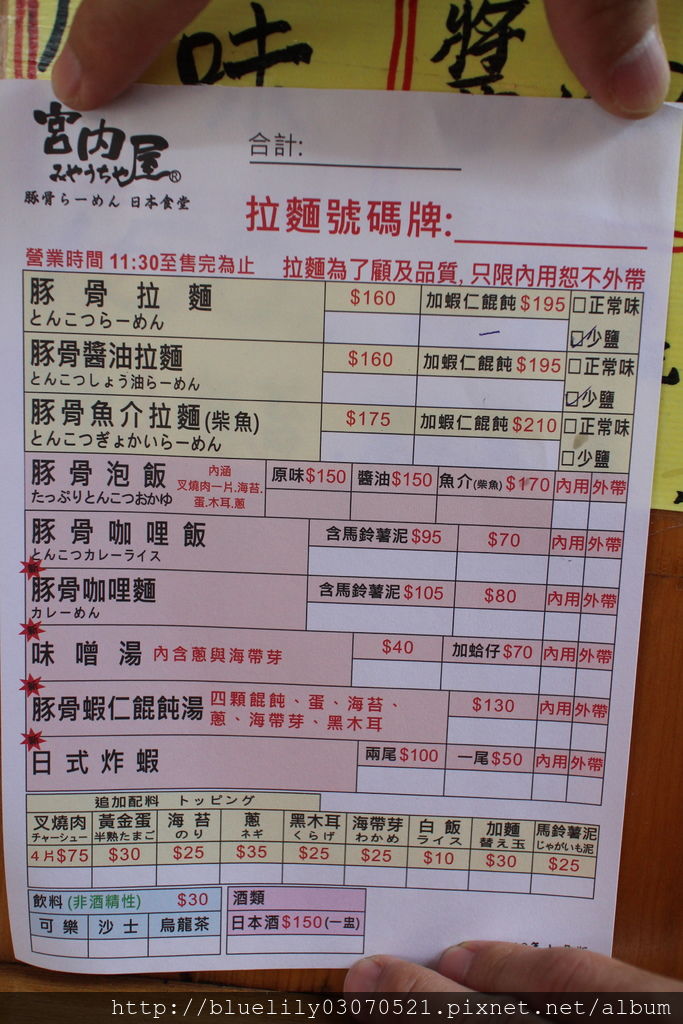 味 醬
宮内屋
みやうちや®
豚骨らーめん 日本食堂
合計:
拉麵號碼牌:
營業時間 11:30至售完為止 拉麵為了顧及品質, 只限內用恕不外帶
豚骨拉麵 $160 加蝦仁餛飩$195 □正常味
とんこつらーめん □少鹽
豚骨醬油拉麵 $160 加蝦仁餛飩$195 □正常味
とんこつしょう油らーめん □少鹽
豚骨魚介拉麵(柴魚) $175 加蝦仁餛飩$210 □正常味
とんこつぎょかいらーめん □少鹽
豚骨泡飯 內涵 原味$150 醬油$150 魚介(柴魚)$170 內用 外帶
たっぷりとんこつおかゆ 叉燒肉一片.海苔.
蛋.木耳.蔥
豚骨咖哩飯 含馬鈴薯泥$95 $70 內用 外帶
とんこつカレーライス
豚骨咖哩麵 含馬鈴薯泥$105 $80 內用 外帶
カレーめん
味噌湯 內含蔥與海帶芽 $40 加蛤仔$70 內用 外帶
豚骨蝦仁餛飩湯 四顆餛飩、蛋、海苔、 $130 內用 外帶
蔥、海帶芽、黑木耳
日式炸蝦 兩尾$100 一尾$50 內用 外帶
追加配料 トッピング
叉燒肉 黃金蛋 海苔 蔥 黑木耳 海帶芽 白飯 加麵 馬鈴薯泥
チャーシュー 半熟たまご のり ネギ くらげ わかめ ライス 替え玉 じゃがいも泥
4片$75 $30 $25 $35 $25 $25 $10 $30 $25
飲料(非酒精性) $30 酒類
可樂 沙士 烏龍茶 日本酒$150(一盅)
http://bluelily03070521.pixnet.net/album